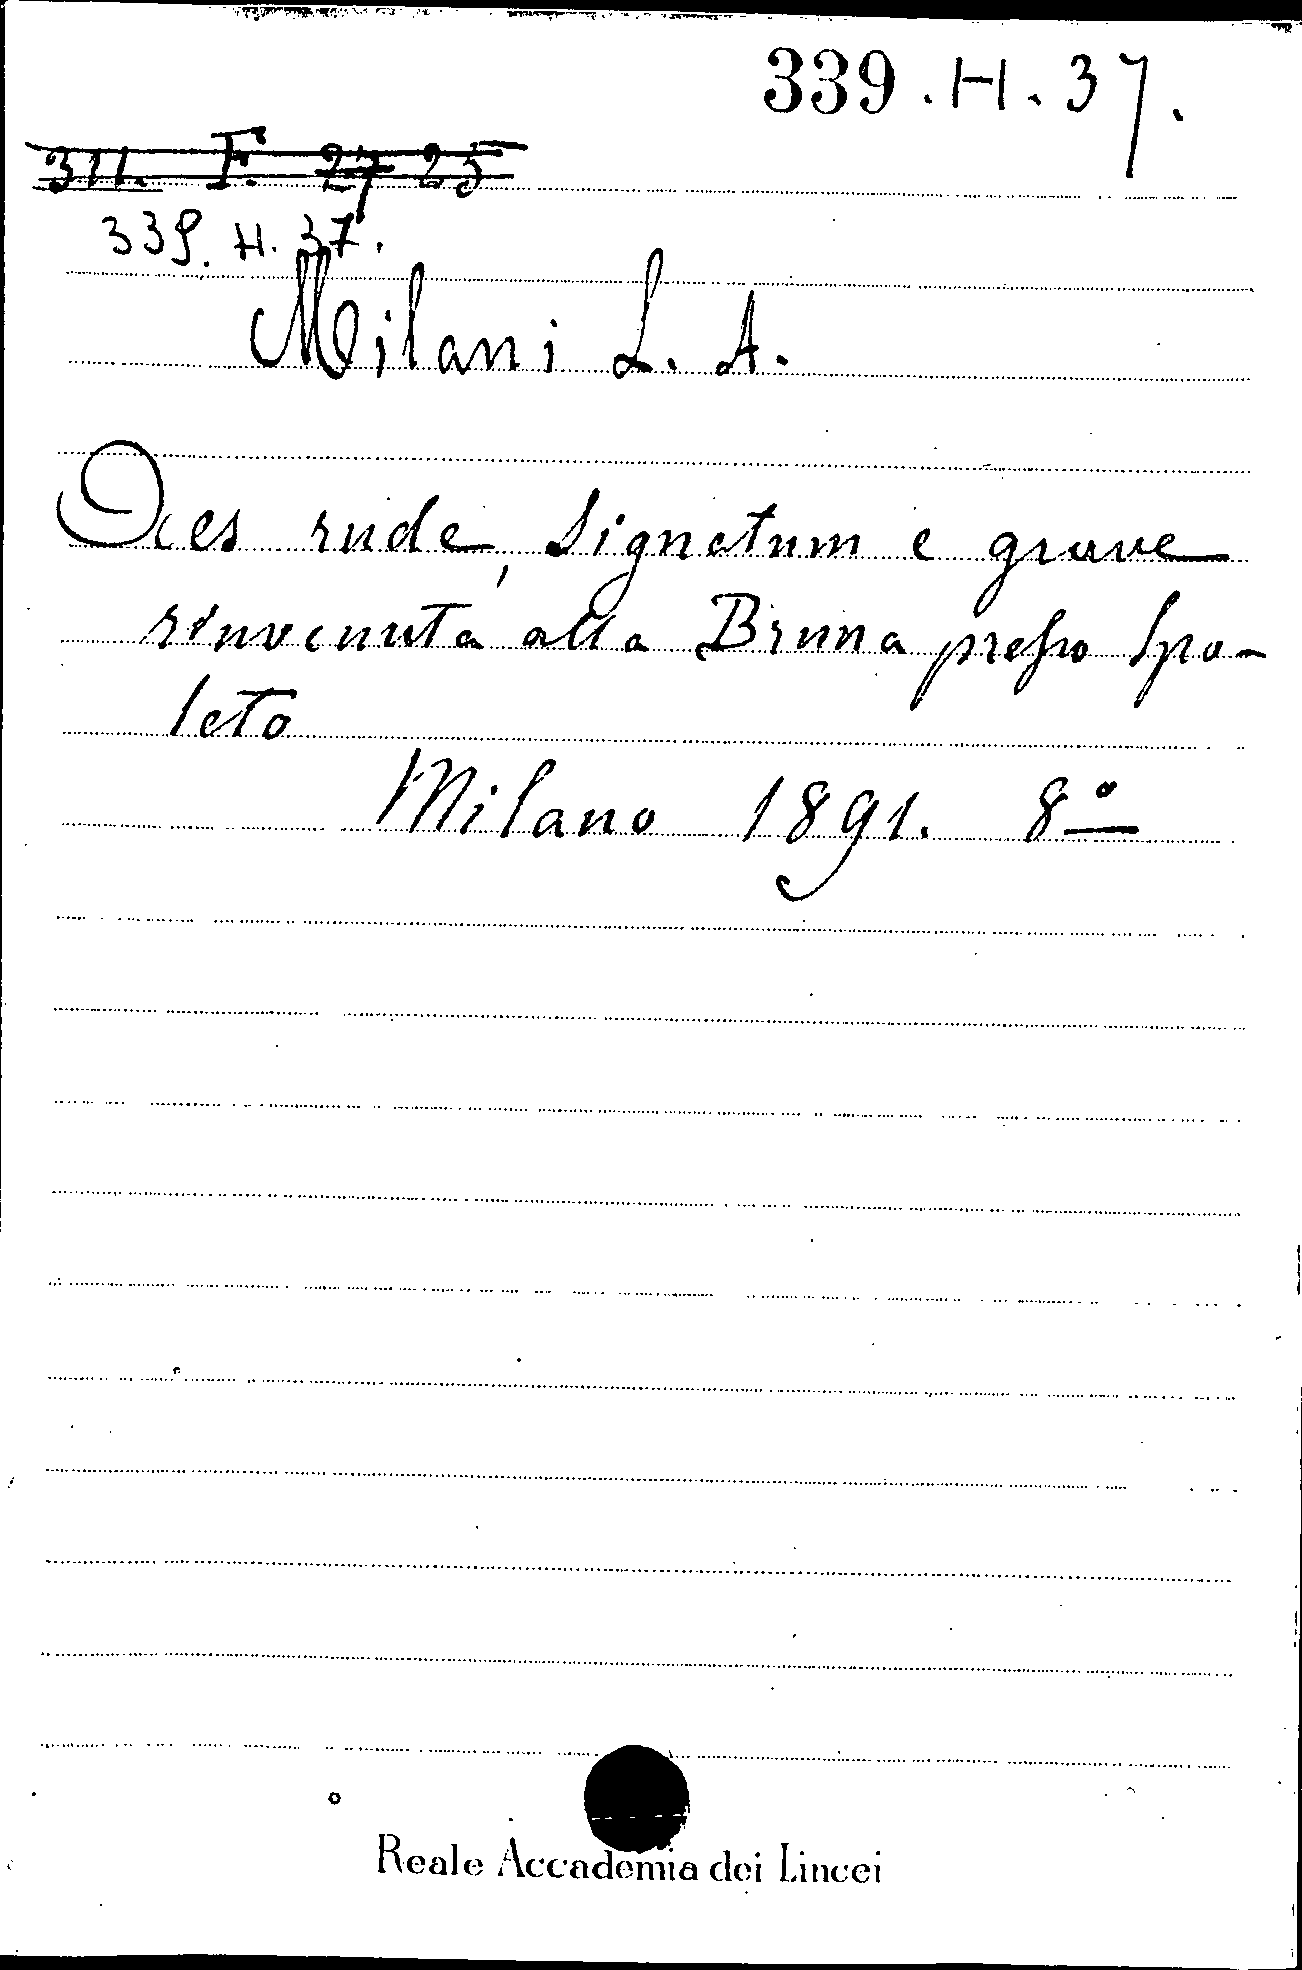 339.H.37.
311. F. 27 25
339. H. 37.
Milani L. A.
Aes rude, signatum e grave
rinvenuta alla Bruna presso Spo-
leto
Milano 1891. 8º
Reale Accademia dei Lincei